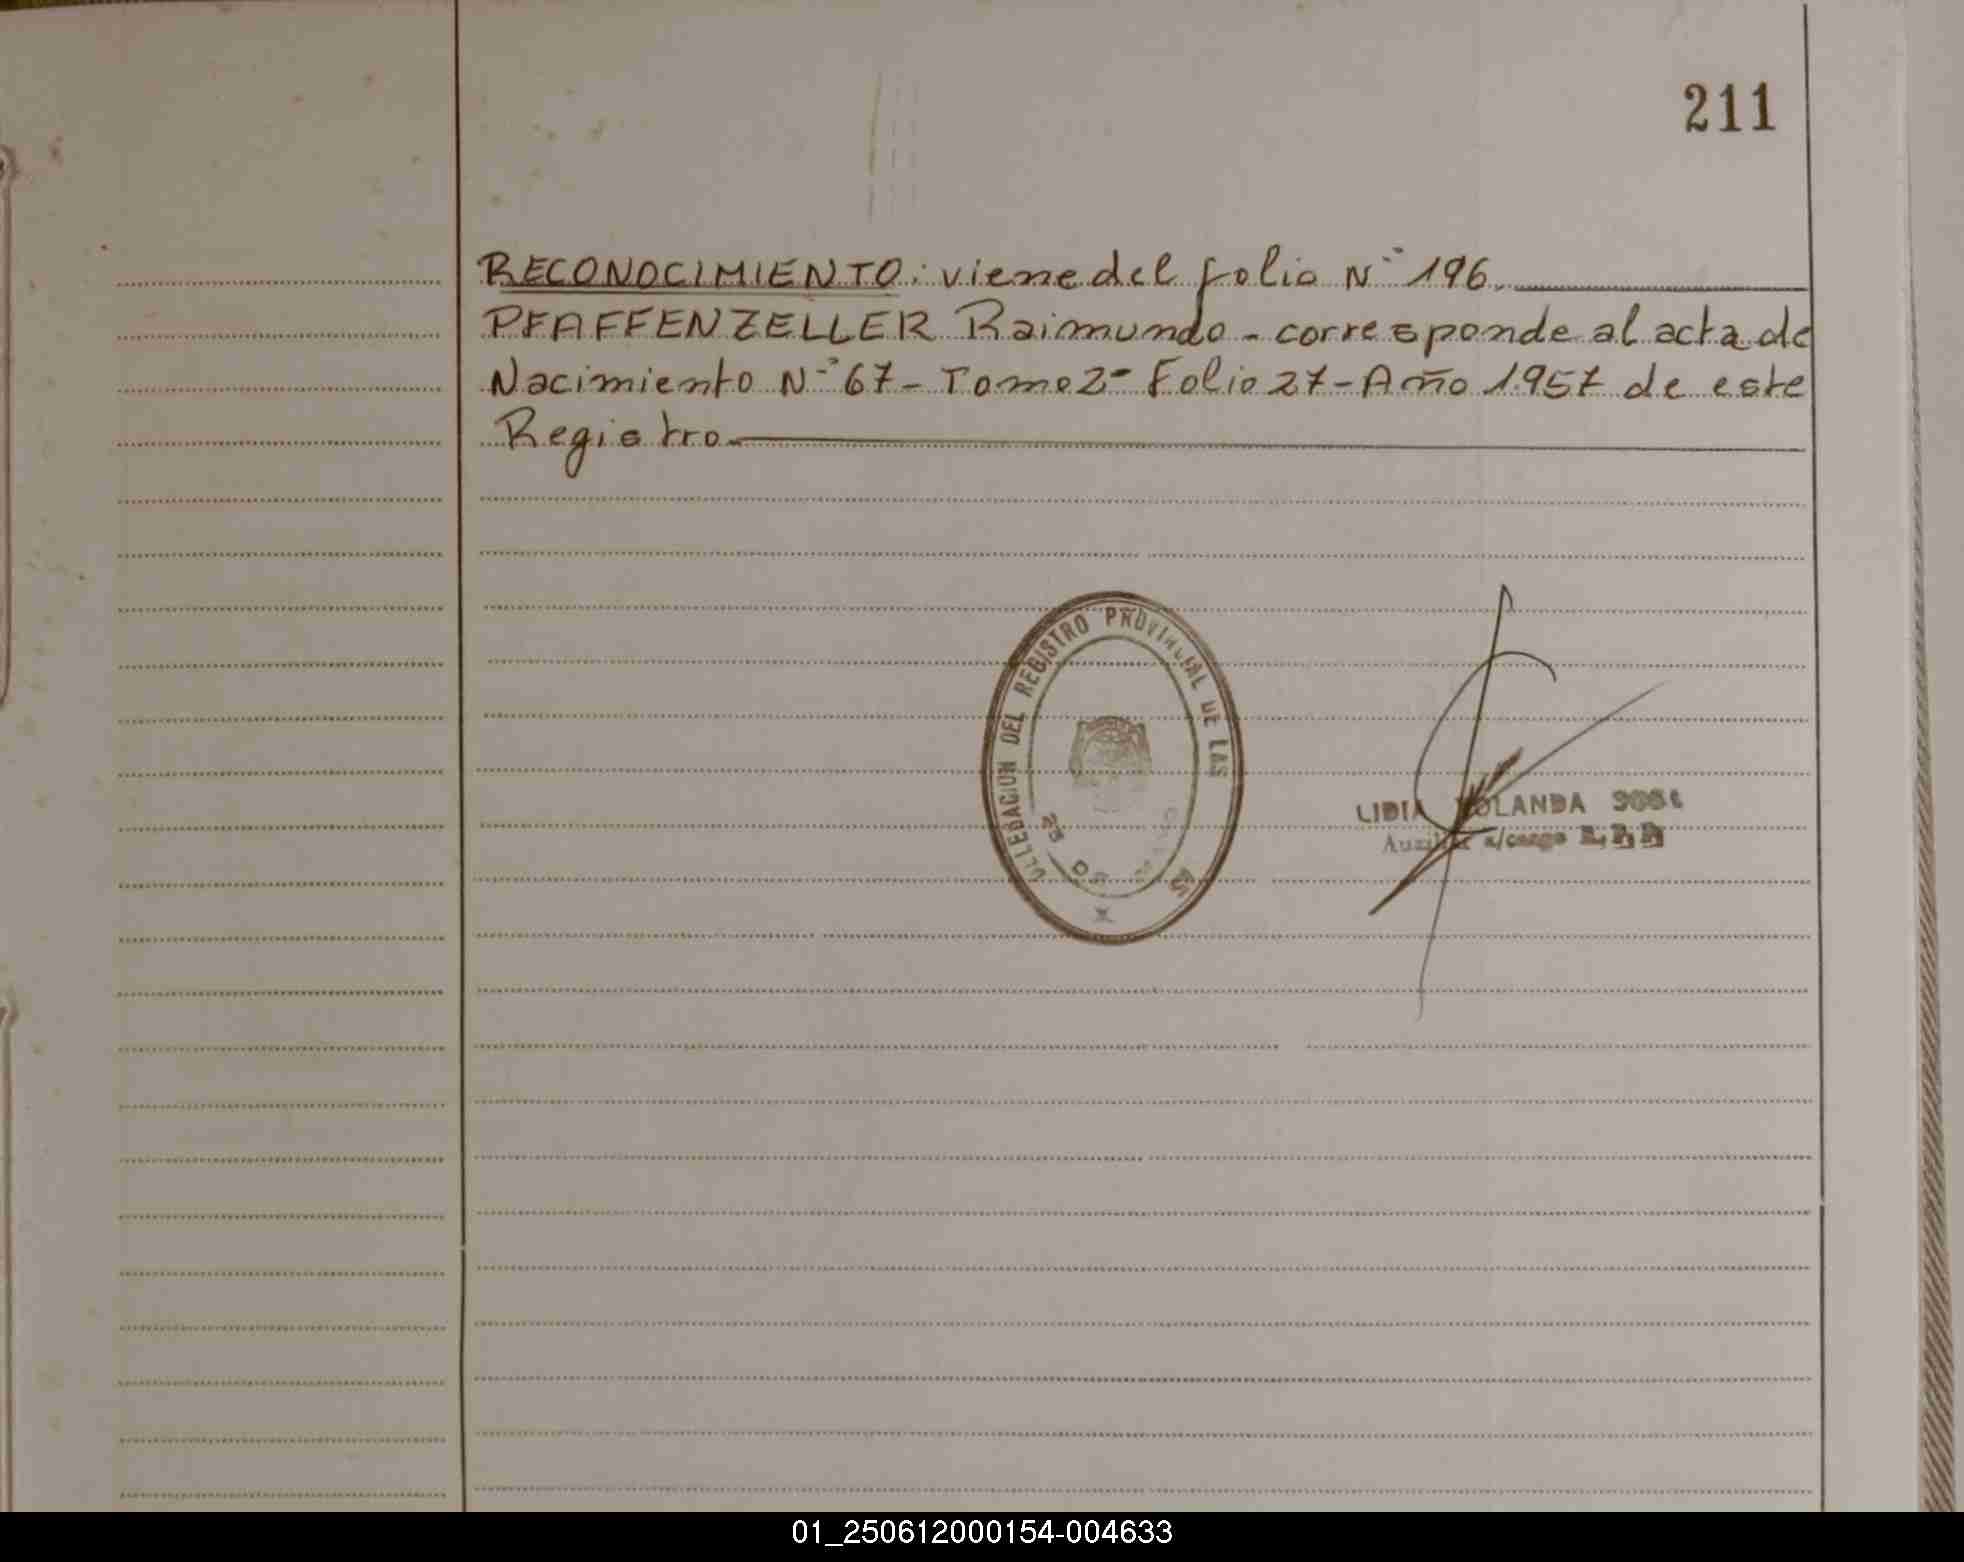 211
RECONOCIMIENTO: viene del folio Nº 196.
PFAFFENZELLER Raimundo - corresponde al acta de
Nacimiento Nº 67 - Tomo 2º Folio 27 - Año 1957 de este
Registro
DELEGACION DEL REGISTRO PROVINCIAL DE LAS
LIDIA YOLANDA
Auxiliar a/cargo
01_250612000154-004633